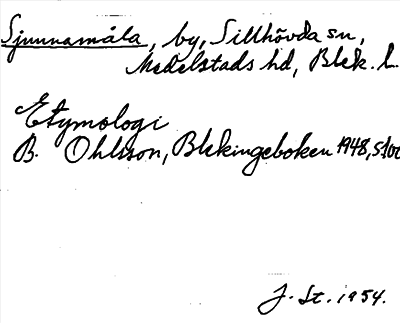 Sjunnamåla, by, Sillhövda sn,
Medelstads hd, Blek. l.
Etymologi
B. Ohlsson, Blekingeboken 1948, s.100
J. St. 1954.